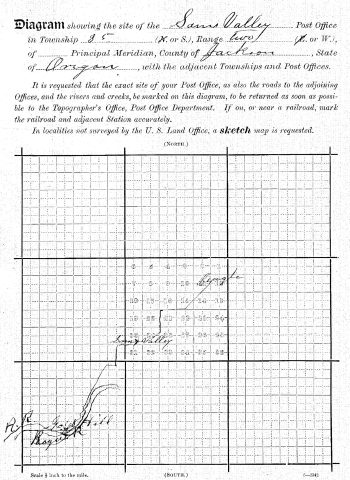 Diagram showing the site of the Sams Valley Post Office
in Township 35 (N. or S.), Range two (E. or W.),
of Principal Meridian, County of Jackson, State
of Oregon, with the adjacent Townships and Post Offices.
It is requested that the exact site of your Post Office, as also the roads to the adjoining
Offices, and the rivers and creeks, be marked on this diagram, to be returned as soon as possi-
ble to the Topographer's Office, Post Office Department. If on, or near a railroad, mark
the railroad and adjacent Station accurately.
In localities not surveyed by the U. S. Land Office, a sketch map is requested.
(NORTH.)
6 5 4 3 2 1
7 8 9 10 11 12
18 17 16 15 14 13
19 20 21 22 23 24
30 29 28 27 26 25
Sams Valley
31 32 33 34 35 36
R R Gold Hill
Rogue R
Scale ½ inch to the mile.
(SOUTH.)